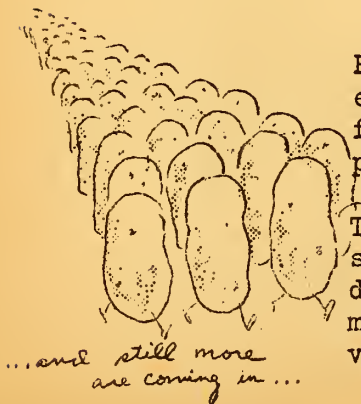 ...and still more
are coming in...